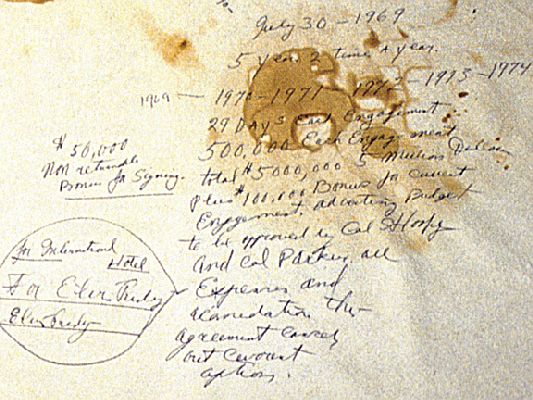 July 30 - 1969
5 year 2 times a year.
1969 — 1970 - 1971 - 1972 - 1973 - 1974
29 Days Each Engagement
500,000 Each Engagement
Total $5000,000 5 Million Dollars
Plus $100,000 Bonus for current
Engagement. advertising Budget
to be approved by Col
and Col Parker, all
Expenses and
the
agreement cancels
out current
option.
$50,000
Non returnable
Bonus for Signing.
For International
Hotel
For Elvis Presley
Elvis Presley